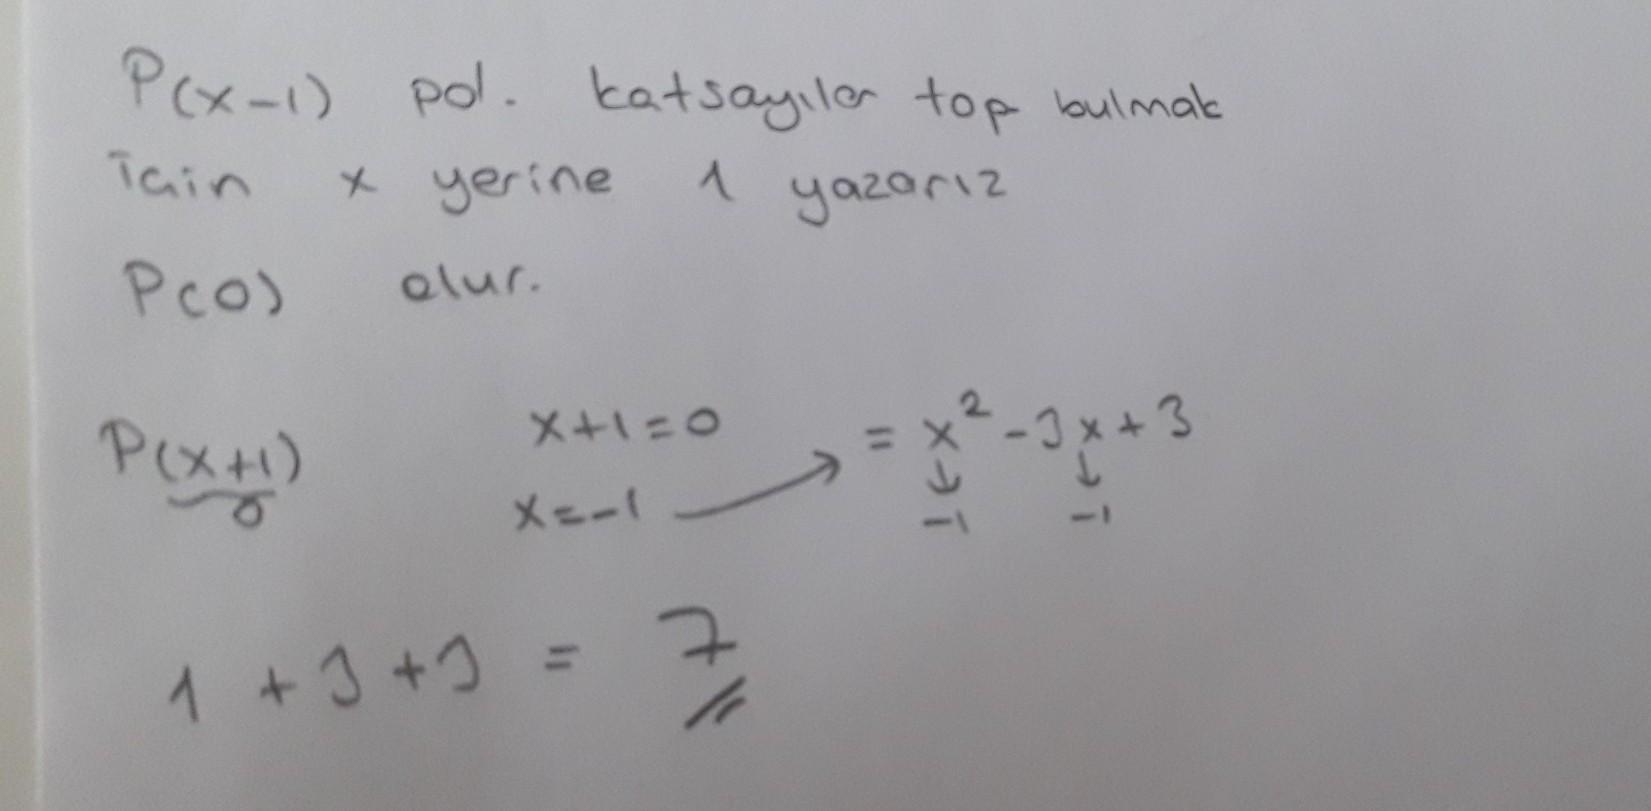 P(x-1) pol. katsayılar top bulmak
için x yerine 1 yazarız
P(0) olur.
P(x+1) x+1=0 = x² -3x+3
0 x=-1 → ↓ ↓
-1 -1
1 +3+3 = 7